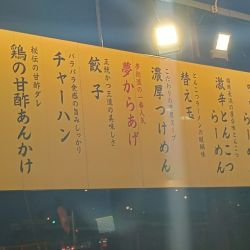 ら
激辛とんこつ
らーめん
とんこつラーメンの醍醐味
替え玉
こだわりの濃厚スープ
濃厚つけめん
夢街道の一番人気
夢からあげ
正統かつ王道の美味しさ
餃子
パラパラ食感の旨みしっかり
チャーハン
秘伝の甘酢ダレ
鶏の甘酢あんかけ